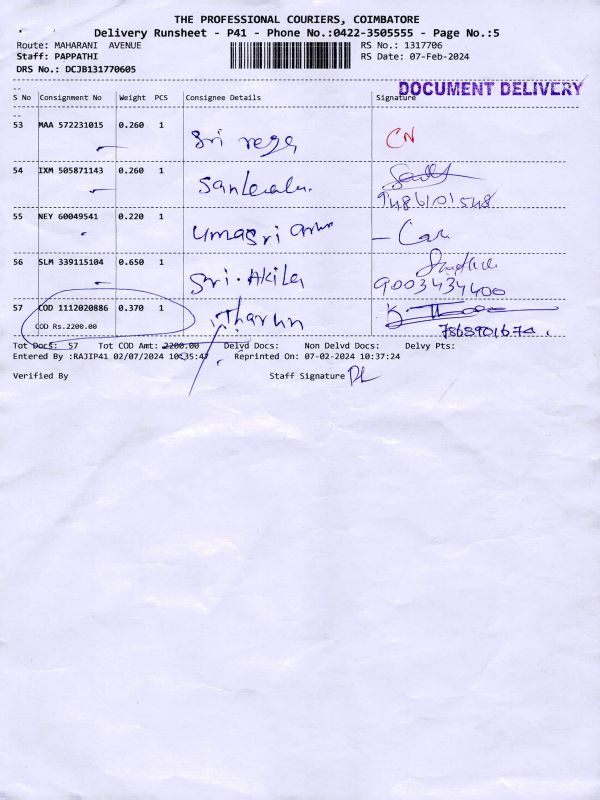 THE PROFESSIONAL COURIERS, COIMBATORE
Delivery Runsheet - P41 - Phone No.:0422-3505555 - Page No.:5
Route: MAHARANI AVENUE RS No.: 1317706
Staff: PAPPATHI RS Date: 07-Feb-2024
DRS No.: DCJB131770605
DOCUMENT DELIVERY
S No Consignment No Weight PCS Consignee Details Signature
53 MAA 572231015 0.260 1 Sri CN
54 IXM 505871143 0.260 1
9486101548
55 NEY 60049541 0.220 1 Umasri
56 SLM 339115104 0.650 1 Sri. Akila
9003434400
57 COD 1112020886 0.370 1 Tharun
COD Rs.2200.00
7868901674.
Tot Docs: 57 Tot COD Amt: 2200.00 Delvd Docs: Non Delvd Docs: Delvy Pts:
Entered By :RAJIP41 02/07/2024 10:35:47 Reprinted On: 07-02-2024 10:37:24
Verified By Staff Signature